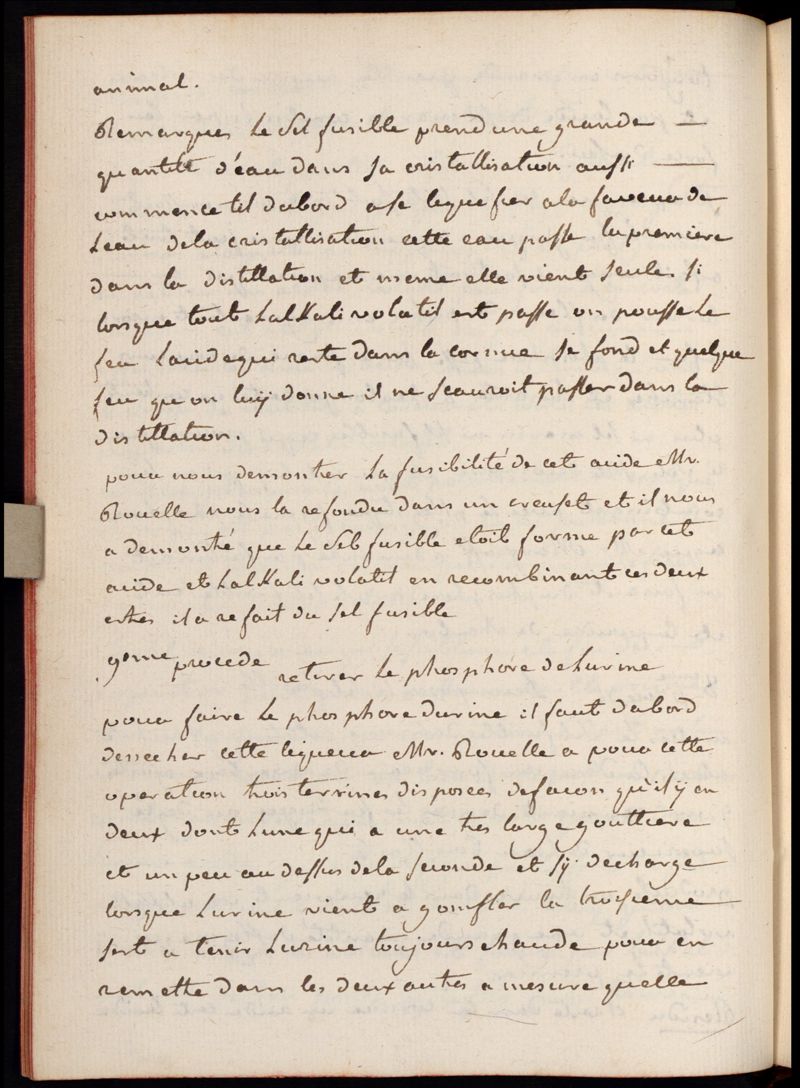 animal.
Remarques Le Sel fusible prend une grande —
quantité d'eau dans sa cristallisation aussi —
commence til dabord a se liquefier a la faveur de
Leau dela cristallisation cette eau passe la premiere
dans la distillation et meme elle vient seule. si
lorsque tout Lalkali volatil est passe on pousse Le
feu Lacide qui reste dans la cornue se fond et quelque
feu que on luÿ donne il ne scauroit passer dans la
distillation.
pour nous demontrer La fusibilité de cet acide Mr.
Rouelle nous la refondu dans un creuset et il nous
a demontré que Le Sel fusible etoit forme par cet
acide et Lalkali volatil en recombinant ces deux
estres il a refait du sel fusible
9eme procede retirer Le phosphore de Lurine
pour faire Le phosphore durine il faut dabord
dessecher cette liqueur Mr. Rouelle a pour cette
operation trois terrines disposees defacon qu'il ÿ en
deux dont Lune qui a une tres large gouttiere
et un peu au dessus dela seconde et sÿ decharge
lorsque Lurine vient a gonfler la troisieme
sert a tenir Lurine toujours chaude pour en
remettre dans les deux autres a mesure quelle